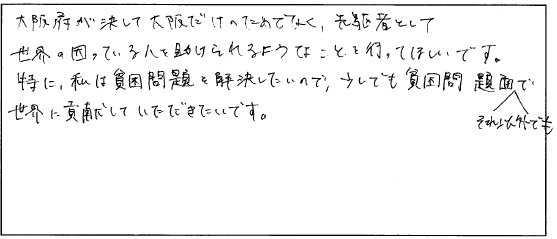 大阪府が決して大阪だけのためでなく、先駆者として
世界の困っている人を助けられるようなことを行ってほしいです。
特に、私は貧困問題を解決したいので、少しでも貧困問題面で
それ以外でも
世界に貢献していただきたいです。